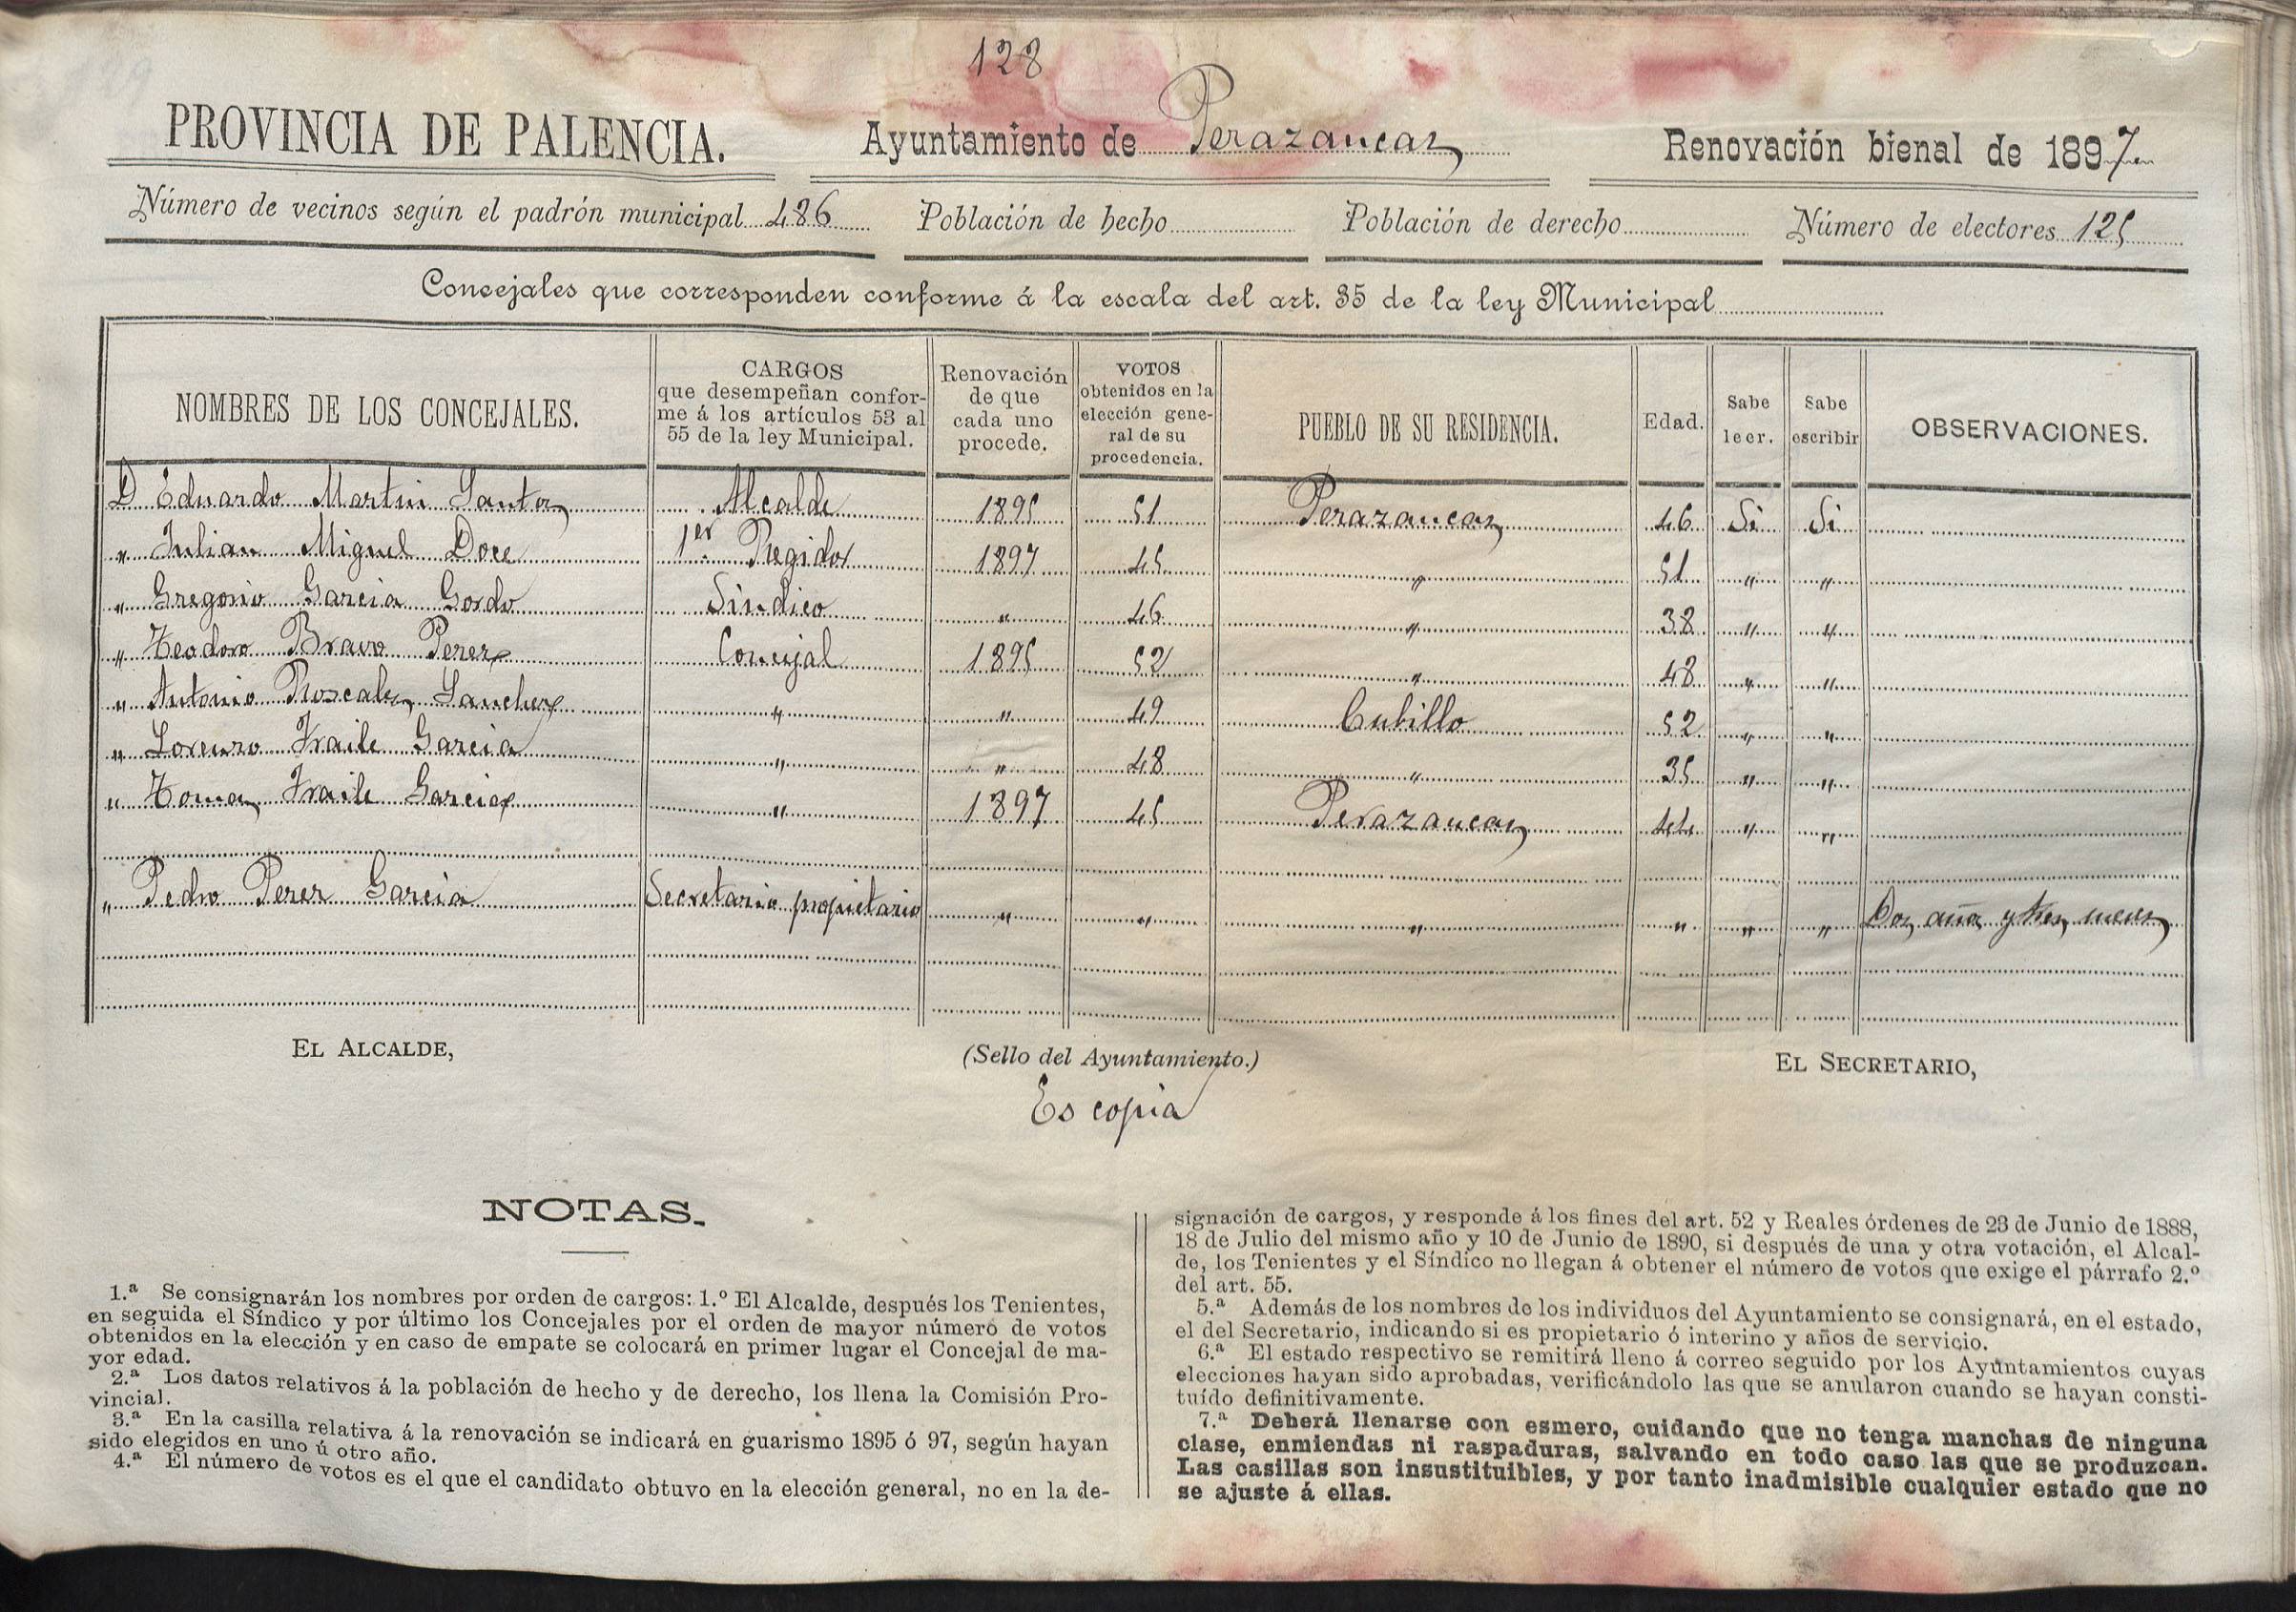 128
PROVINCIA DE PALENCIA. Ayuntamiento de Perazancas Renovación bienal de 1897
Número de vecinos según el padrón municipal 486 Población de hecho Población de derecho Número de electores 125
Concejales que corresponden conforme á la escala del art. 35 de la ley Municipal
NOMBRES DE LOS CONCEJALES. CARGOS que desempeñan conforme á los artículos 53 al 55 de la ley Municipal. Renovación de que cada uno procede. VOTOS obtenidos en la elección general de su procedencia. PUEBLO DE SU RESIDENCIA. Edad. Sabe leer. Sabe escribir OBSERVACIONES.
D Eduardo Martin Santos Alcalde 1895 51 Perazancas 46 Si Si
" Julian Miguel Doce 1er Regidor 1897 45 " 51 " "
" Gregorio Garcia Gordo Sindico " 46 " 38 " "
" Teodoro Bravo Perez Concejal 1895 52 " 48 " "
" Antonio Roscales Sanchez " " 49 Cubillo 52 " "
" Lorenzo Fraile Garcia " " 48 " 35 " "
" Tomas Fraile Garcia " 1897 45 Perazancas 44 " "
" Pedro Perez Garcia Secretario propietario " " " " " " Dos años y tres meses
EL ALCALDE, (Sello del Ayuntamiento.) EL SECRETARIO,
Es copia
NOTAS.
1.ª Se consignarán los nombres por orden de cargos: 1.º El Alcalde, después los Tenientes,
en seguida el Síndico y por último los Concejales por el orden de mayor número de votos
obtenidos en la elección y en caso de empate se colocará en primer lugar el Concejal de ma-
yor edad.
2.ª Los datos relativos á la población de hecho y de derecho, los llena la Comisión Pro-
vincial.
3.ª En la casilla relativa á la renovación se indicará en guarismo 1895 ó 97, según hayan
sido elegidos en uno ú otro año.
4.ª El número de votos es el que el candidato obtuvo en la elección general, no en la de-
signación de cargos, y responde á los fines del art. 52 y Reales órdenes de 23 de Junio de 1888,
18 de Julio del mismo año y 10 de Junio de 1890, si después de una y otra votación, el Alcal-
de, los Tenientes y el Síndico no llegan á obtener el número de votos que exige el párrafo 2.º
del art. 55.
5.ª Además de los nombres de los individuos del Ayuntamiento se consignará, en el estado,
el del Secretario, indicando si es propietario ó interino y años de servicio.
6.ª El estado respectivo se remitirá lleno á correo seguido por los Ayuntamientos cuyas
elecciones hayan sido aprobadas, verificándolo las que se anularon cuando se hayan consti-
tuído definitivamente.
7.ª Deberá llenarse con esmero, cuidando que no tenga manchas de ninguna
clase, enmiendas ni raspaduras, salvando en todo caso las que se produzcan.
Las casillas son insustituibles, y por tanto inadmisible cualquier estado que no
se ajuste á ellas.